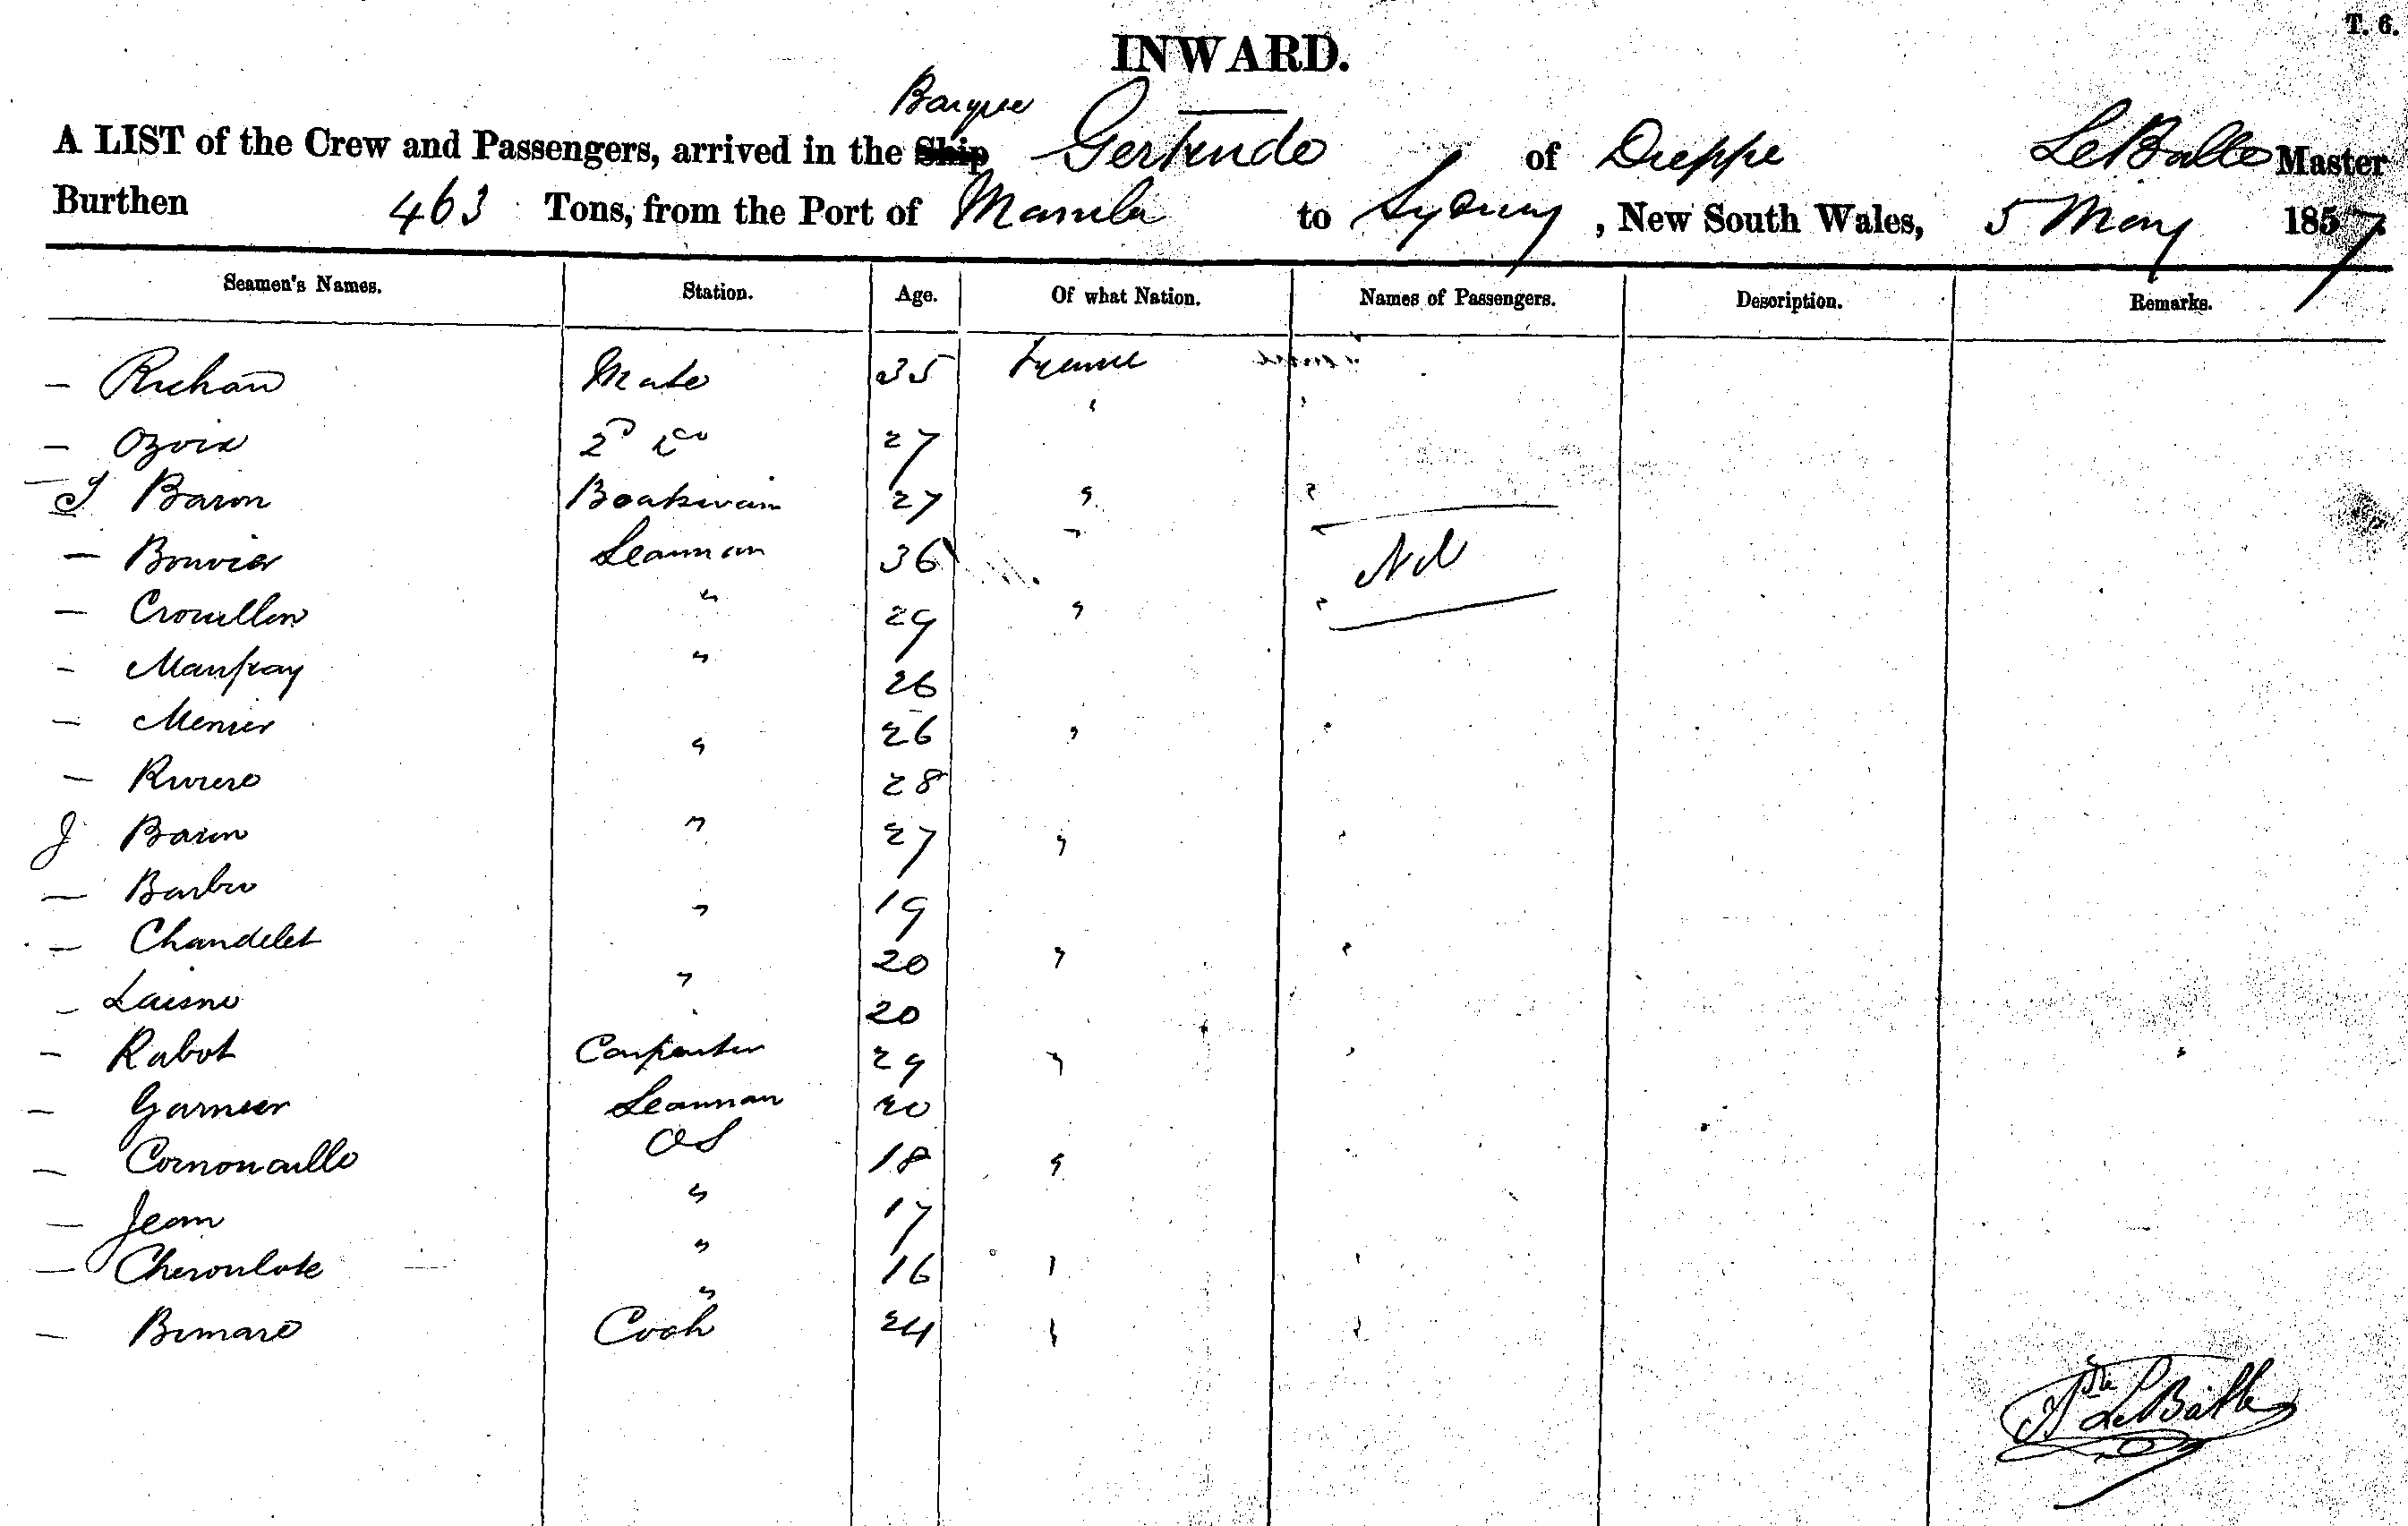 T. 6.
INWARD.
Barque
A LIST of the Crew and Passengers, arrived in the Ship Gertrude of Dieppe LeBalle Master
Burthen 463 Tons, from the Port of Manila to Sydney, New South Wales, 5 May 1857.
Seamen's Names. Station. Age. Of what Nation. Names of Passengers. Description. Remarks.
— Richard Mate 35 France
— Ozoix 2D Do 27 "
— J Baron Boatswain 27 "
— Bouvier Seaman 36 " Nil
— Crouillon " 29 "
— Maufray " 26
— Menier 26 "
— Riviere " 28
J Baron " 27 "
— Barbu 19
— Chandelet " 20 "
— Laisne " 20
— Rabot Carpenter 29 "
— Garnier Seaman 20
— Cornouaille OS 18 "
— Jean " 17
— Cheroulote " 16 "
— Bimare Cook 24 "
LeBalle